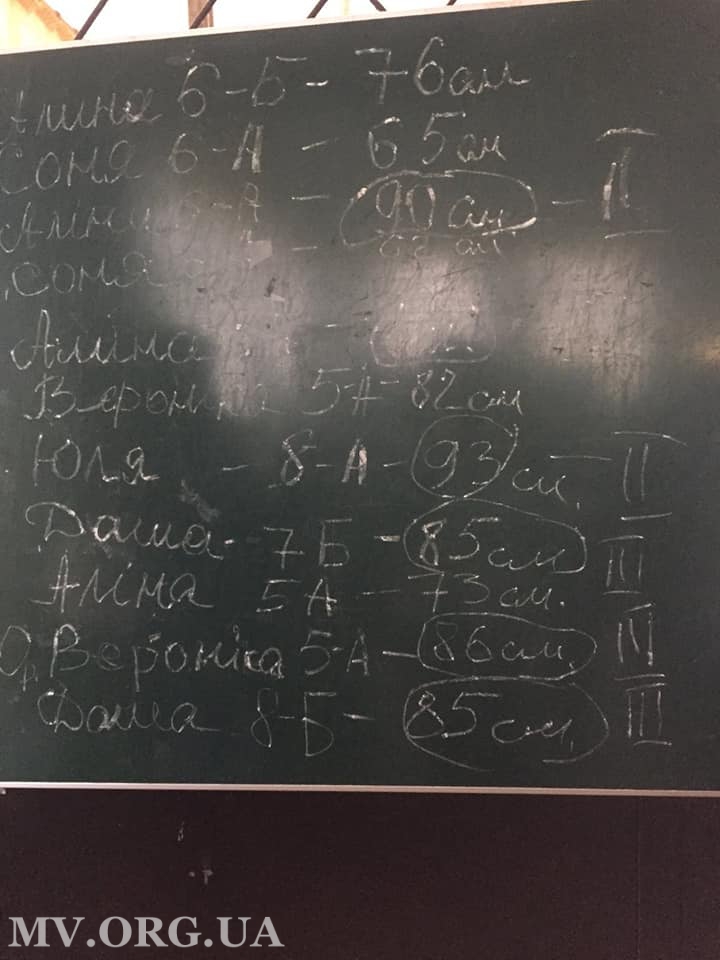 Алина 6-Б - 76см
Соня 6-А - 65см
Аліна 6-А - 90см - II
Соня
Аліна
Вероніка 5-А - 82см
Юля - 8-А - 93см. - II
Даша - 7Б - 85см III
Аліна 5А - 73см.
Вероніка 5-А - 86см.
Даша 8-Б - 85см. III
MV.ORG.UA